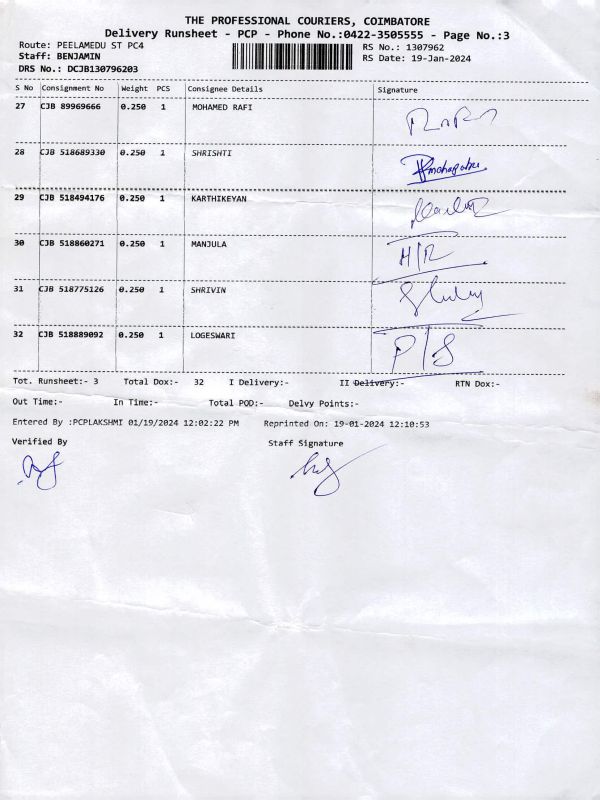 THE PROFESSIONAL COURIERS, COIMBATORE
Delivery Runsheet - PCP - Phone No.:0422-3505555 - Page No.:3
Route: PEELAMEDU ST PC4 RS No.: 1307962
Staff: BENJAMIN RS Date: 19-Jan-2024
DRS No.: DCJB130796203
S No Consignment No Weight PCS Consignee Details Signature
27 CJB 89969666 0.250 1 MOHAMED RAFI
28 CJB 518689330 0.250 1 SHRISHTI
29 CJB 518494176 0.250 1 KARTHIKEYAN
30 CJB 518860271 0.250 1 MANJULA H/R
31 CJB 518775126 0.250 1 SHRIVIN
32 CJB 518889092 0.250 1 LOGESWARI P/S
Tot. Runsheet:- 3 Total Dox:- 32 I Delivery:- II Delivery:- RTN Dox:-
Out Time:- In Time:- Total POD:- Delvy Points:-
Entered By :PCPLAKSHMI 01/19/2024 12:02:22 PM Reprinted On: 19-01-2024 12:10:53
Verified By Staff Signature